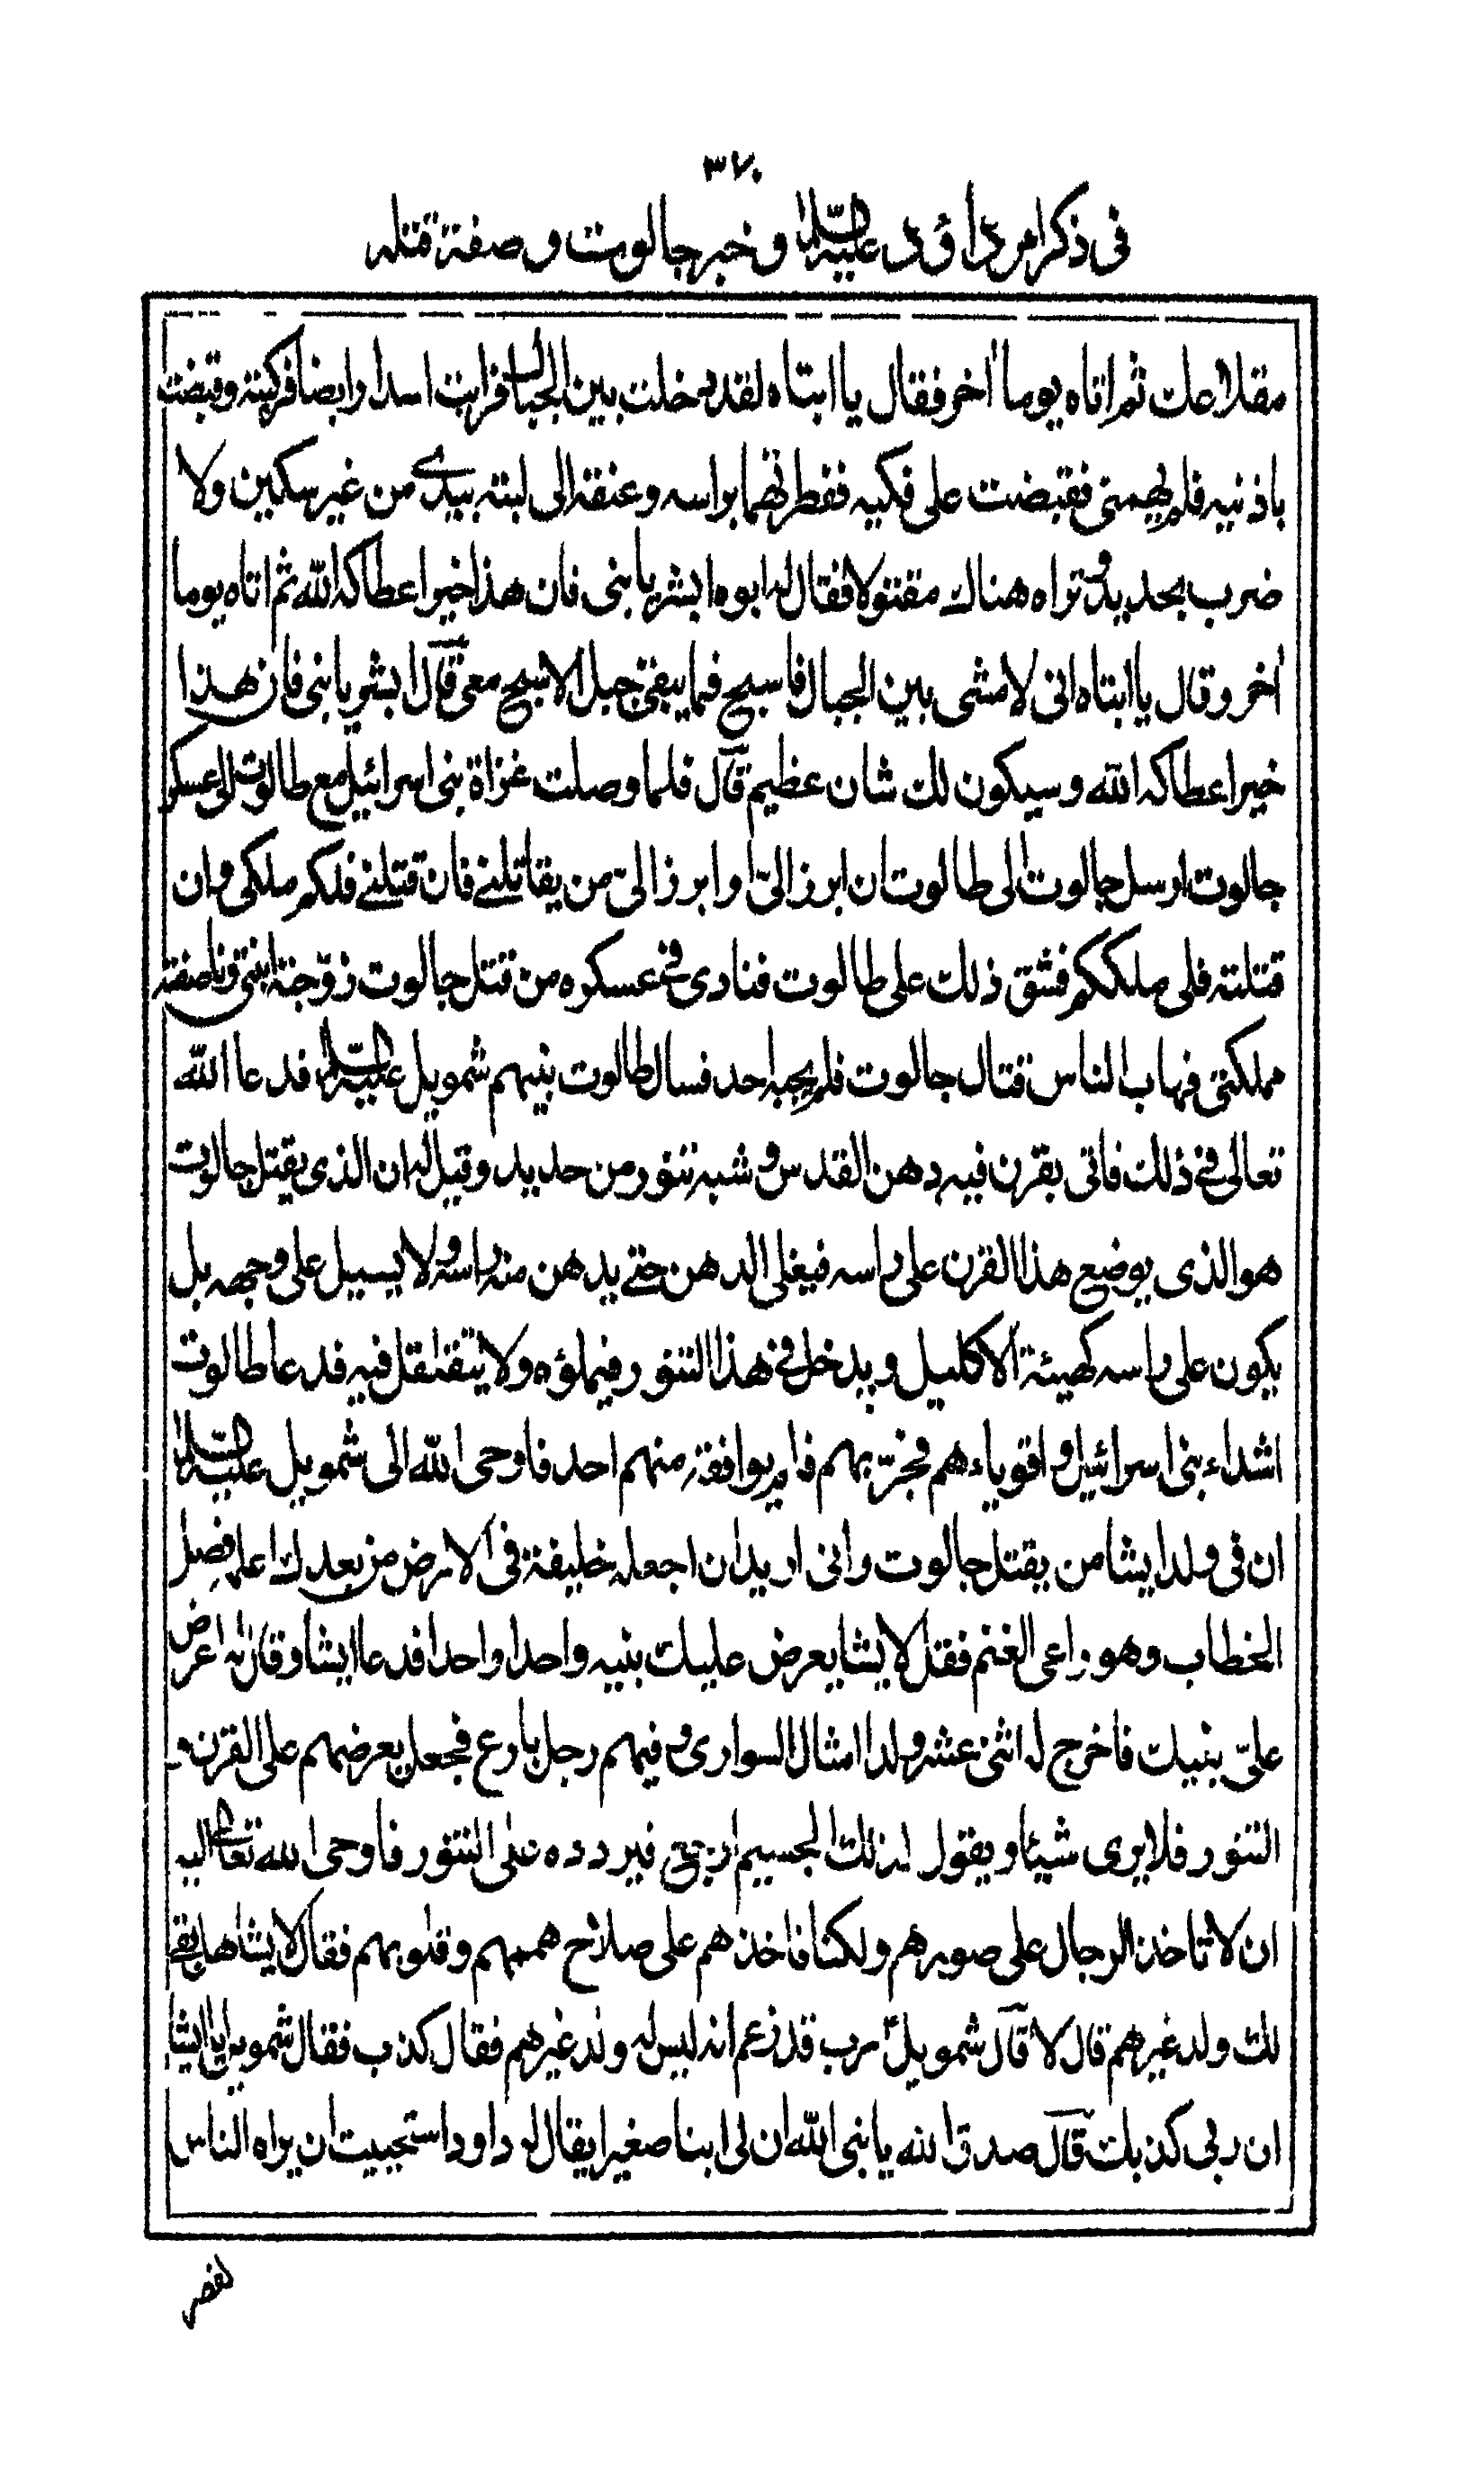 ٣٧٠
في ذكر امر داؤد عليه السلام و خبر جالوت و صفة قتله
مقلاعك ثم اتاه يوما اخر فقال يا ابتاه لقد دخلت بين الجبال فرايت اسدا رابضا فركبته و قبضت
باذنيه فلم يهمني فقبضت على فكيه ففطرتهما براسه و عنقه الى لبته بيدي من غير سكين ولا
ضرب بحديد و تراه هناك مقتولا فقال له ابوه ابشر يا بني فان هذا خير اعطاكه الله ثم اتاه يوما
اخر وقال يا ابتاه اني لامشي بين الجبال فاسبح فما يبقى جبل الا سبح معي قال ابشر يا بني فان هذا
خير اعطاكه الله وسيكون لك شان عظيم قال فلما وصلت غزاة بني اسرائيل مع طالوت الى عسكر
جالوت ارسل جالوت الى طالوت ان ابرز الىّ او ابرز الىّ من يقاتلنے فان قتلنے فلكم ملكى و ان
قتلته فلى ملككم فشق ذلك على طالوت فنادى فے عسكره من قتل جالوت زوّجته ابنتى و ناصفته
مملكتى فهاب الناس قتال جالوت فلم يجبه احد فسال طالوت نبيهم شمويل عليه السلام فدعا الله
تعالى فے ذلك فاتى بقرن فيه دهن القدس و شبه تنور من حديد و قيل له ان الذى يقتل جالوت
هو الذى يوضع هذا القرن على راسه فيغلى الدهن حتے يدهن منه راسه ولا يسيل على وجهه بل
يكون على راسه كهيئة الاكليل و يدخل فے هذا التنور فيملؤه ولا يتقلقل فيه فدعا طالوت
اشداء بنى اسرائيل و اقوياءهم فجرّبهم فلم يوافقه منهم احد فاوحى الله الى شمويل عليه السلام
ان فى ولد ايشا من يقتل جالوت وانى اريد ان اجعله خليفة فى الارض من بعدك اعلمه فصل
الخطاب وهو راعى الغنم فقل لايشا يعرض عليك بنيه واحدا واحدا فدعا ايشا وقال له اعرض
علىّ بنيك فاخرج له اثنى عشر ولدا امثال السوارى و فيهم رجل بارع فجعل يعرضهم على القرن و
التنور فلا يرى شيئا ويقول لذلك الجسيم ارجع فيردده على التنور فاوحى الله تعالى اليه
ان لا تاخذ الرجال على صورهم ولكنا ناخذهم على صلاح هممهم و قلوبهم فقال لايشا هل بقے
لك ولد غيرهم قال لا قال شمويل رب قد زعم انه ليس له ولد غيرهم فقال كذب فقال شمويل يا ايشا
ان ربى كذبك قال صدق الله يا نبى الله ان لى ابنا صغيرا يقال له داود استحييت ان يراه الناس